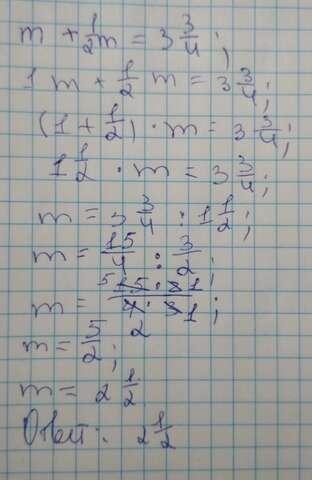 m + 1/2 m = 3 3/4;
1 m + 1/2 m = 3 3/4;
(1 + 1/2) · m = 3 3/4;
1 1/2 · m = 3 3/4;
m = 3 3/4 : 1 1/2;
m = 15/4 : 3/2;
m = 5 15 · 2 1 / 4 · 3 1;
2
m = 5/2;
m = 2 1/2
Ответ: 2 1/2